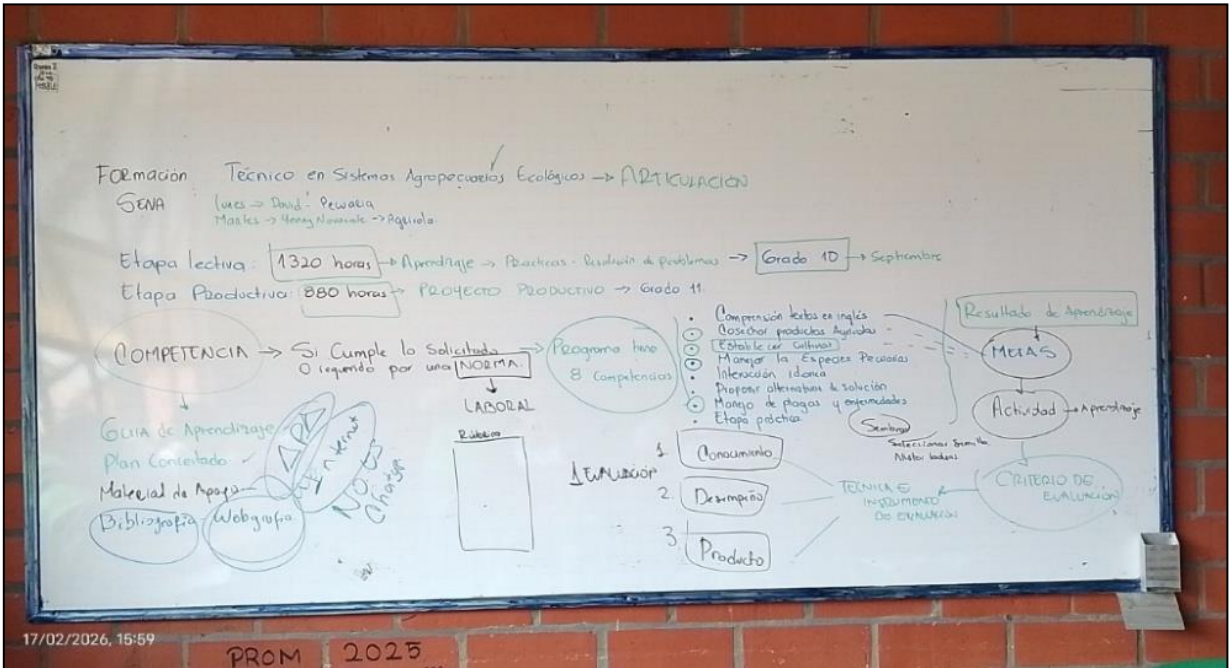 FORmación Técnico en Sistemas Agropecuarios Ecológicos → ARTICULACIÓN
SENA
lunes → David - Pecuaria
Martes → → Agrícola
Etapa lectiva: 1320 horas → Aprendizaje → Prácticas - Resolución de problemas → Grado 10 → Septiembre
Etapa Productiva: 880 horas → PROYECTO PRODUCTIVO → Grado 11
COMPETENCIA → Si Cumple lo Solicitado
O requerido por una NORMA.
LABORAL
Programa tiene
8 Competencias
• Comprensión textos en inglés
Cosechar productos Agrícolas
Establecer Cultivos
Manejar la Especies Pecuarias
• Interacción Idonea
• Proponer alternativas de solución
Manejo de plagas y enfermedades
• Etapa práctica
Resultado de Aprendizaje
METAS
Actividad → Aprendizaje
Sembrar
Seleccionar Semilla
CRITERIO DE
EVALUACIÓN
TÉCNICA E
INSTRUMENTO
DE EVALUACIÓN
GUIA de Aprendizaje
Plan Concertado
Material de Apoyo
Bibliografía
Webgrafía
APA
Internet
NO ES
Chatgpt
Rúbrica
EVALUACIÓN
1. Conocimiento
2. Desempeño
3. Producto
17/02/2026, 15:59
PROM 2025